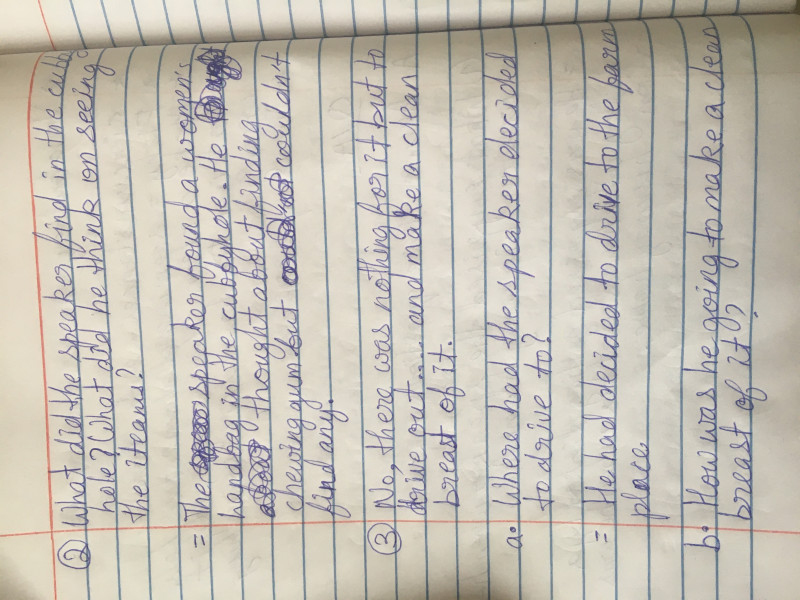 ② What did the speaker find in the cubby
hole? What did he think on seeing
the iteams?
= The speaker found a women's
handbag in the cubbyhole. He
thought about finding
chewing gum but couldn't
find any.
③ No, there was nothing for it but to
drive out..... and make a clean
breast of it.
a. Where had the speaker decided
to drive to?
= He had decided to drive to the farm
place
b. How was he going to make a clean
breast of it?